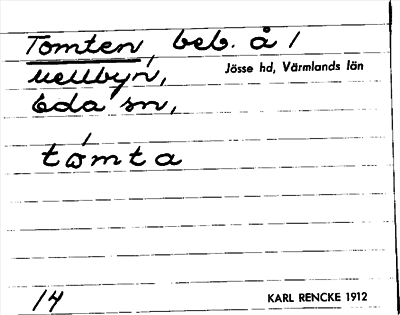 Tomten, beb. å 1
uellbyn,
Jösse hd, Värmlands län
Eda sn,
tømta
14
KARL RENCKE 1912